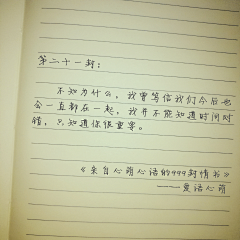 第二十一封：
不知为什么，我曾笃信我们今后也
会一直都在一起，我并不能知道时间对
错，只知道你很重要。
《来自心萌心语的999封情书》
——爱语心萌